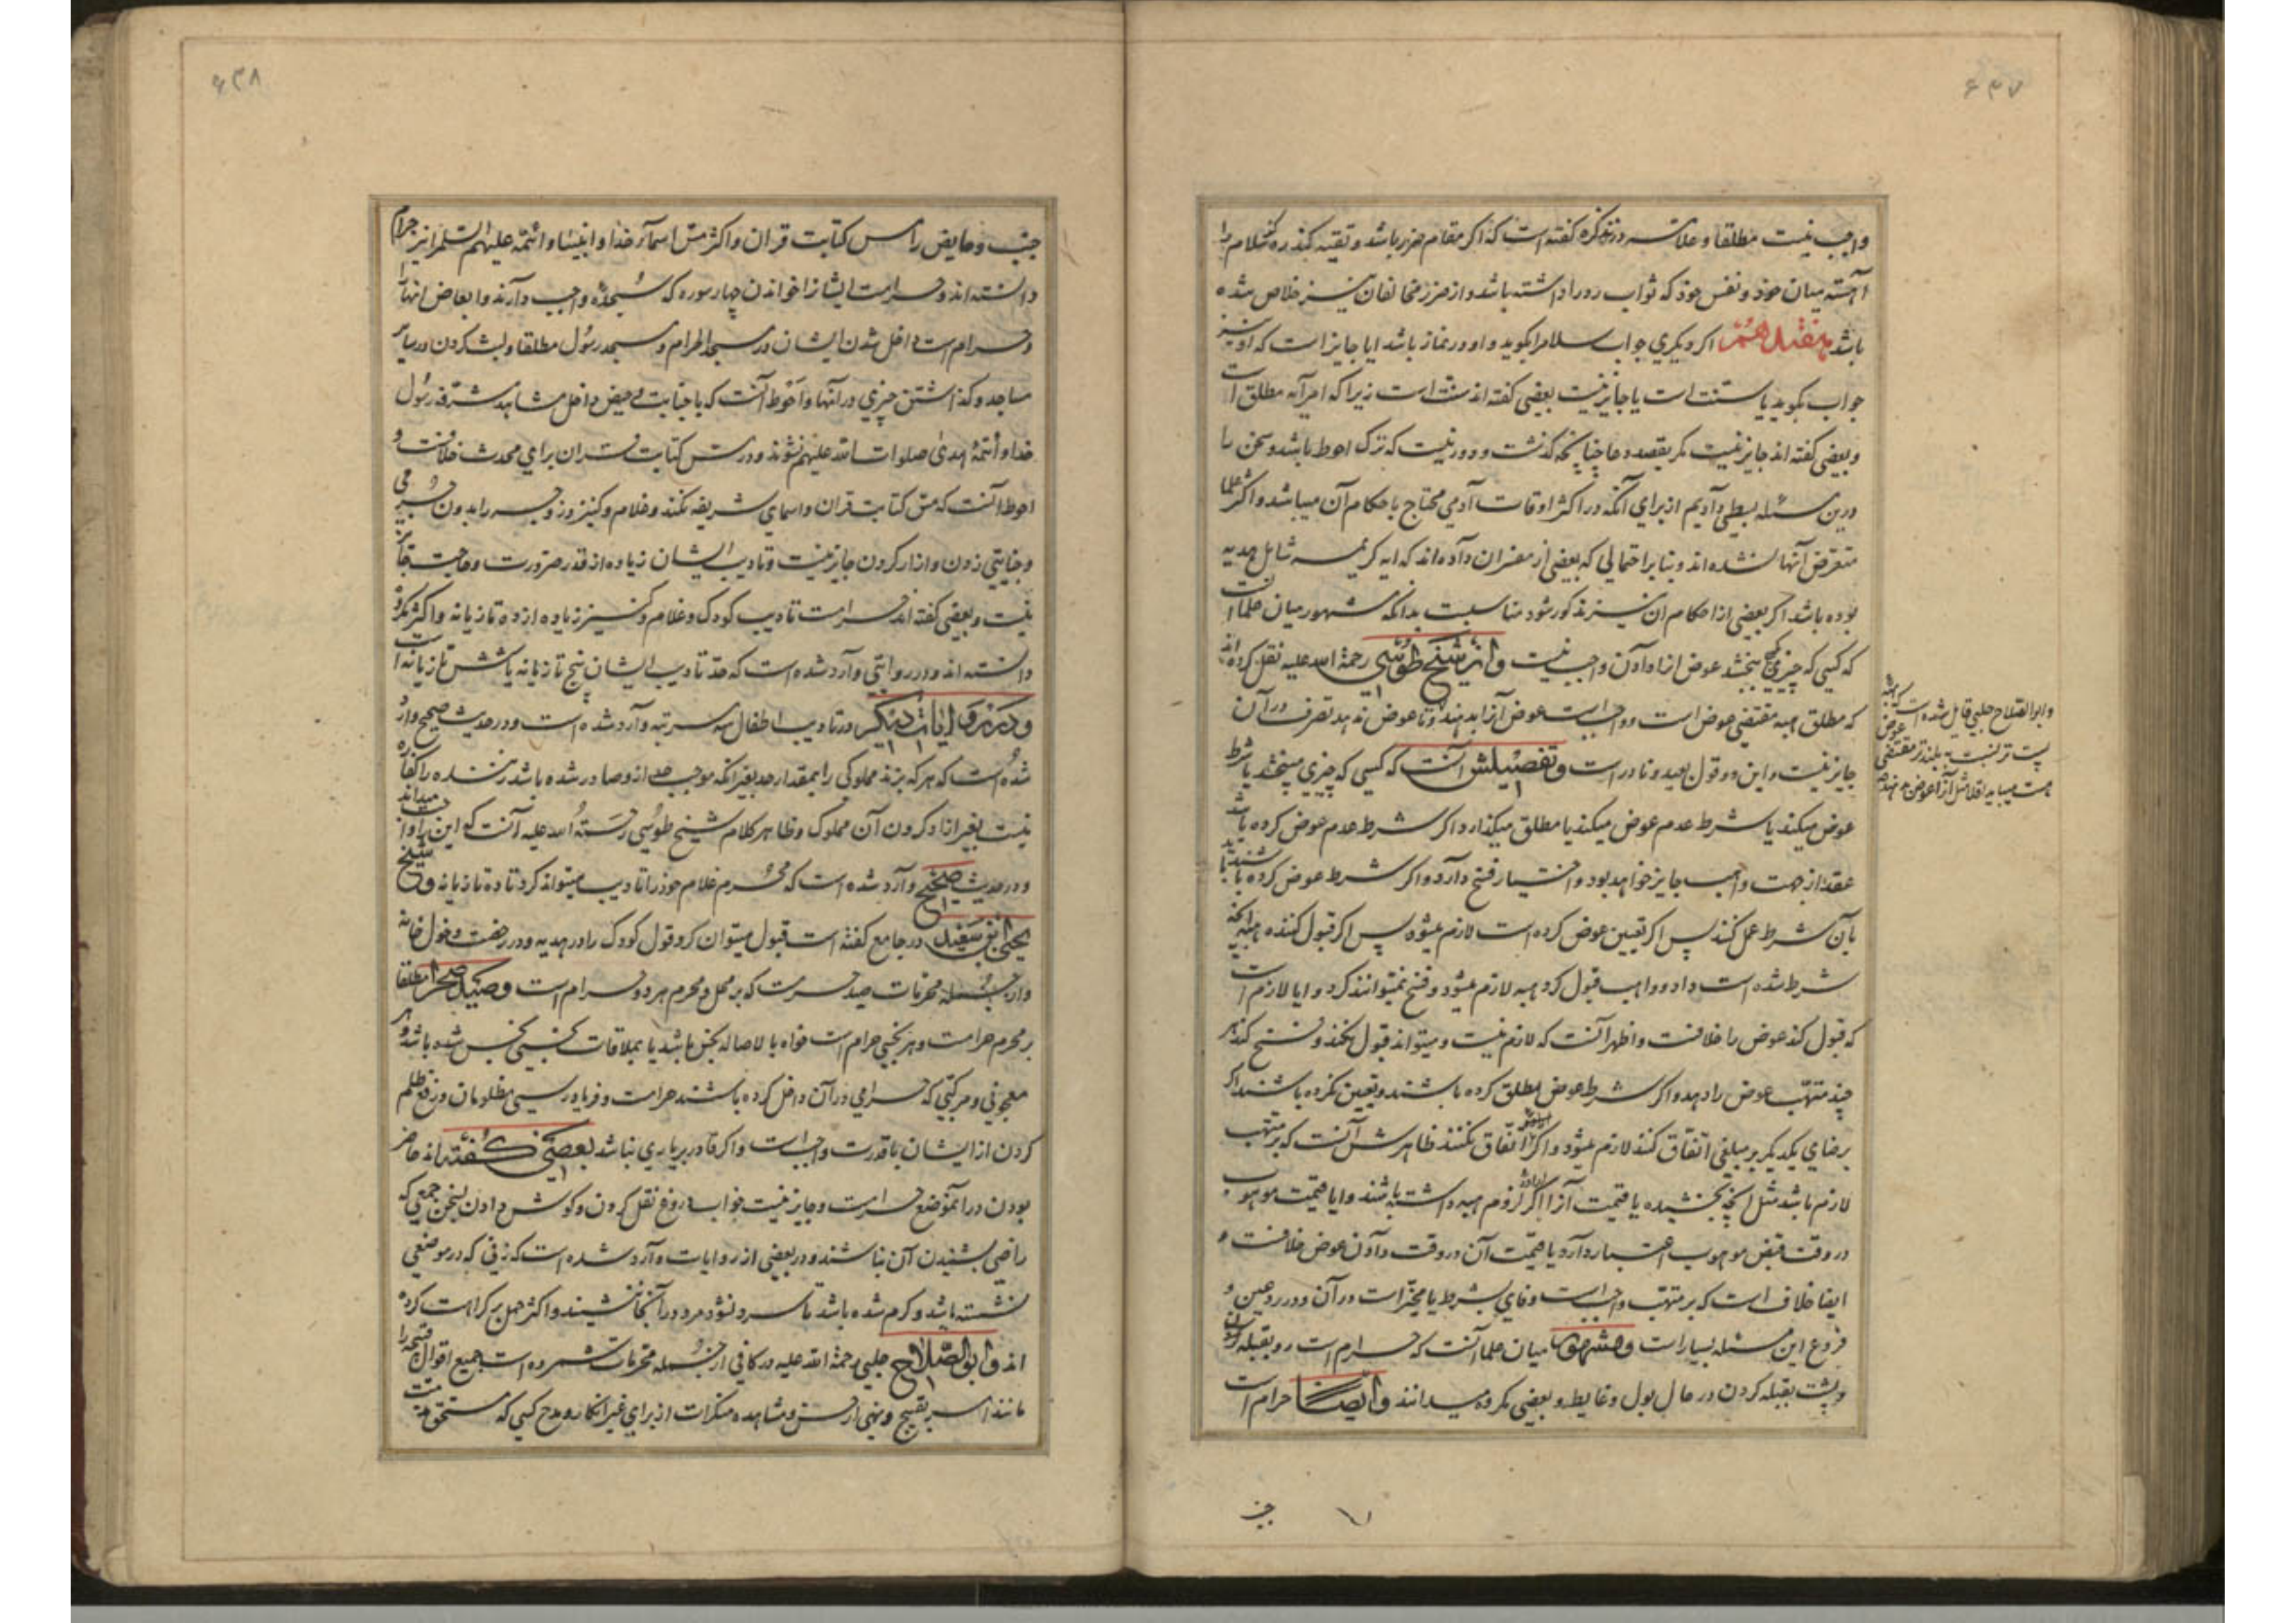 ۶۴۷
واجب نیست مطلقا و علامه در تذکره گفته است که اگر مقام ضرر باشد و تقیه کند رد سلام را
آهسته میان خود و نفس خود که ثواب رد را داشته باشد و از ضرر مخالفان نیز خلاص شده
باشد هفدهم اکر دیکری جواب سلام را بکوید و او در نماز باشد ایا جایز است که او نیز
جواب بکوید یا سنت است یا جایز نیست بعضی کفته اند سنت است زیرا که امر آیه مطلق است
و بعضی کفته اند جایز نیست مکر بقصد دعا چنانچه کذشت و دور نیست که ترک احوط باشد و سخن را
درین مسئله بسطی دادیم از برای آنکه در اکثر اوقات آدمی محتاج باحکام آن میباشد و اکثر علما
متعرض آنها نشده اند و بنا بر احتمالی که بعضی از مفسران داده اند که ایه کریمه شامل هدیه
بوده باشد اکر بعضی از احکام ان نیز مذکور شود مناسبت بدانکه مشهور میان علما انست
که کسی که چیزی بکسی بخشد عوض از او دادن واجب نیست و از شیخ طوسی رحمة الله علیه نقل کرده اند
که مطلق هبه مقتضی عوض است و واجب است عوض آنرا بدهند و تا عوض ندهد تصرف در آن
جایز نیست و این دو قول بعید و نادر است و تفصیلش آنست که کسی که چیزی میبخشد یا شرط
عوض میکند یا شرط عدم عوض میکند یا مطلق میکذارد اکر شرط عدم عوض کرده باشد
عقد از جهت واهب جایز خواهد بود و اختیار فسخ دارد و اکر شرط عوض کرده باشند باید
بآن شرط عمل کنند پس اکر تعیین عوض کرده است لازم میشود پس اکر قبول کننده هبه آنچه
شرط شده است داد و واهب قبول کرد هبه لازم میشود و فسخ نمیتوانند کرد و ایا لازم است
که قبول کند عوض را خلافست و اظهر آنست که لازم نیست و میتواند قبول نکند و فسخ کند هر
چند متهب عوض را دهد و اکر شرط عوض مطلق کرده باشند و تعیین نکرده باشند اکر
برضای یکدیکر بر مبلغی اتفاق کنند لازم میشود و اکر اتفاق نکنند ظاهرش آنست که بر متهب
لازم باشد مثل آنچه بخشیده یا قیمت آنرا اکر اراده لزوم هبه داشته باشند و ایا قیمت موهوب
در وقت قبض موهوب اعتبار دارد یا قیمت آن در وقت دادن عوض خلافست و
ایضا خلاف است که بر متهب واجب است وفای بشرط یا مخیر است در آن و در رد عین و
فروع این مسئله بسیار است و مشهور میان علما آنست که حرام است رو بقبله کردن
و پشت بقبله کردن در حال بول و غایط و بعضی مکروه میدانند و ایضا حرام است
و ابو الصلاح حلبی قایل شده است که هبه
پست تر نسبت به بلندتر مقتضی عوض
جنب
۶۴۸
جنب و حایض را مس کتابت قران و اکثر مس اسماء خدا و انبیا و ائمه علیهم السلام را نیز حرام
دانسته اند و حرامست ایشانرا خواندن چهار سوره که سجده واجب دارند و ابعاض انها
و حرام است داخل شدن ایشان در مسجد الحرام و مسجد رسول مطلقا و لبث کردن در سایر
مساجد و کذاشتن چیزی در آنها و احوط آنست که با جنابت و حیض داخل مشاهد مشرفه رسول
خدا و ائمه هدی صلوات الله علیهم نشوند و در مس کتابت قران برای محدث خلافست و
احوط آنست که مس کتابت قران و اسمای شریفه نکند و غلام و کنیز و زوجه را بدون جرمی
و جنایتی زدن و ازار کردن جایز نیست و تادیب ایشان زیاده از قدر ضرورت و حاجت جایز
نیست و بعضی کفته اند حرامست تادیب کودک و غلام و کنیز زیاده از ده تازیانه و اکثر مکروه
دانسته اند و در روایتی وارد شده است که حد تادیب ایشان پنج تازیانه یا شش تازیانه است
و در روایات دیکر در تادیب اطفال سه مرتبه وارد شده است و در حدیث صحیح وارد
شده است که هر که بزند مملوکی را بمقدار حد بغیر انکه موجب حد از و صادر شده باشد زننده را کفاره
نیست بغیر ازاد کردن آن مملوک و ظاهر کلام شیخ طوسی رحمة الله علیه آنست که این را واجب میداند
و در حدیث صحیح وارد شده است که محرم غلام خود را تادیب میتواند کرد تا ده تازیانه و شیخ
یحیی بن سعید در جامع کفته است قبول میتوان کرد قول کودک را در هدیه و در رخصت دخول خانه
و از جمله محرمات صید حرمست که بر محل و محرم هر دو حرام است و صید صحرا مطلقا
بر محرم حرامست و هر نجسی حرام است خواه بالاصاله نجس باشد یا بملاقات نجسی نجس شده باشد و هر
معجونی و مرکبی که حرامی در آن داخل کرده باشند حرامست و فریاد رسی مظلومان و رفع ظلم
کردن از ایشان با قدرت واجب است و اکر قادر بر یاری نباشد بعضی کفته اند حاضر
بودن در انموضع حرامست و جایز نیست خواب دروغ نقل کردن و کوش دادن بسخن جمعی که
راضی بشنیدن آن نباشند و در بعضی از روایات وارد شده است که زنی که در موضعی
نشسته باشد و کرم شده باشد تا سرد نشود مرد در آنجا ننشیند و اکثر حمل بر کراهت کرده
اند و ابو الصلاح حلبی رحمة الله علیه در کافی از جمله محرمات شمرده است جمیع اقوال قبیحه را
مانند امر بقبیح و نهی از حسن و مشاهده منکرات از برای غیر انکار و مدح کسی که مستحق مذمت